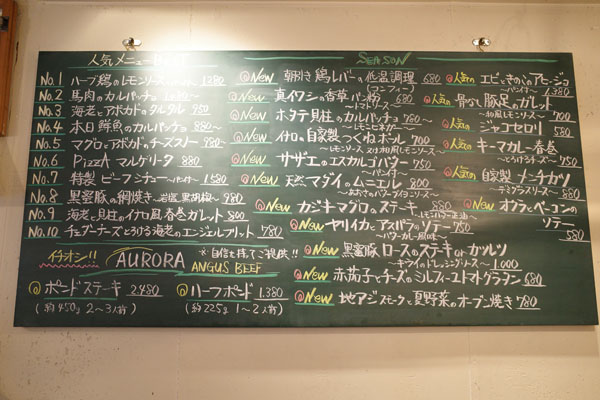 人気メニュー BEST
No.1 ハーブ鶏のレモンソース 1,280
No.2 馬肉のカルパッチョ
No.3 海老とアボカドのタルタル 950
No.4 本日鮮魚のカルパッチョ 880~
No.5 マグロとアボカド、チーズスノー 980
No.6 PIZZA マルゲリータ 880
No.7 特製 ビーフシチュー ~パン付~ 1,580
No.8 黒蜜豚の網焼き ~岩塩、黒胡椒~ 980
No.9 海老と貝柱のイカ口風春巻ガレット 800
No.10 チェダーチーズとろける海老のエンジェルフリット 780
イチオシ!! AURORA ANGUS BEEF
※自信を持ってご提供!!
ボードステーキ 2,480
(約450g 2~3人前)
ハーフボード 1,380
(約225g 1~2人前)
SEASON
New 朝引き鶏レバーの低温調理 680
(コンフィー)
New 真イワシの香草パン粉 680
New ホタテ貝柱のカルパッチョ 780
~レモンビネガー~
New イカ口自家製つくねボール 700
New サザエのエスカルゴバター 750
~パン付~
New 天然マダイのムニエル 800
New カジキマグロのステーキ 880
~レモンバター醤油~
New ヤリイカとアスパラのソテー 750
~バターカレー風味~
New 黒蜜豚ロースのステーキorカツレツ
1,000
New 赤茄子とチーズのミルフィーユトマトグラタン 680
New 地アジスモークと夏野菜のオーブン焼き 780
人気の エビときのこのアヒージョ
~パン付~ 1,380
人気の 骨なし豚足のガレット
~和風レモンソース~ 700
人気の ジャコセロリ 580
人気の キーマカレー春巻
~とろけるチーズ~ 750
人気の 自家製 メンチカツ
~デミグラスソース~ 880
New オクラとベーコンのソテー
580